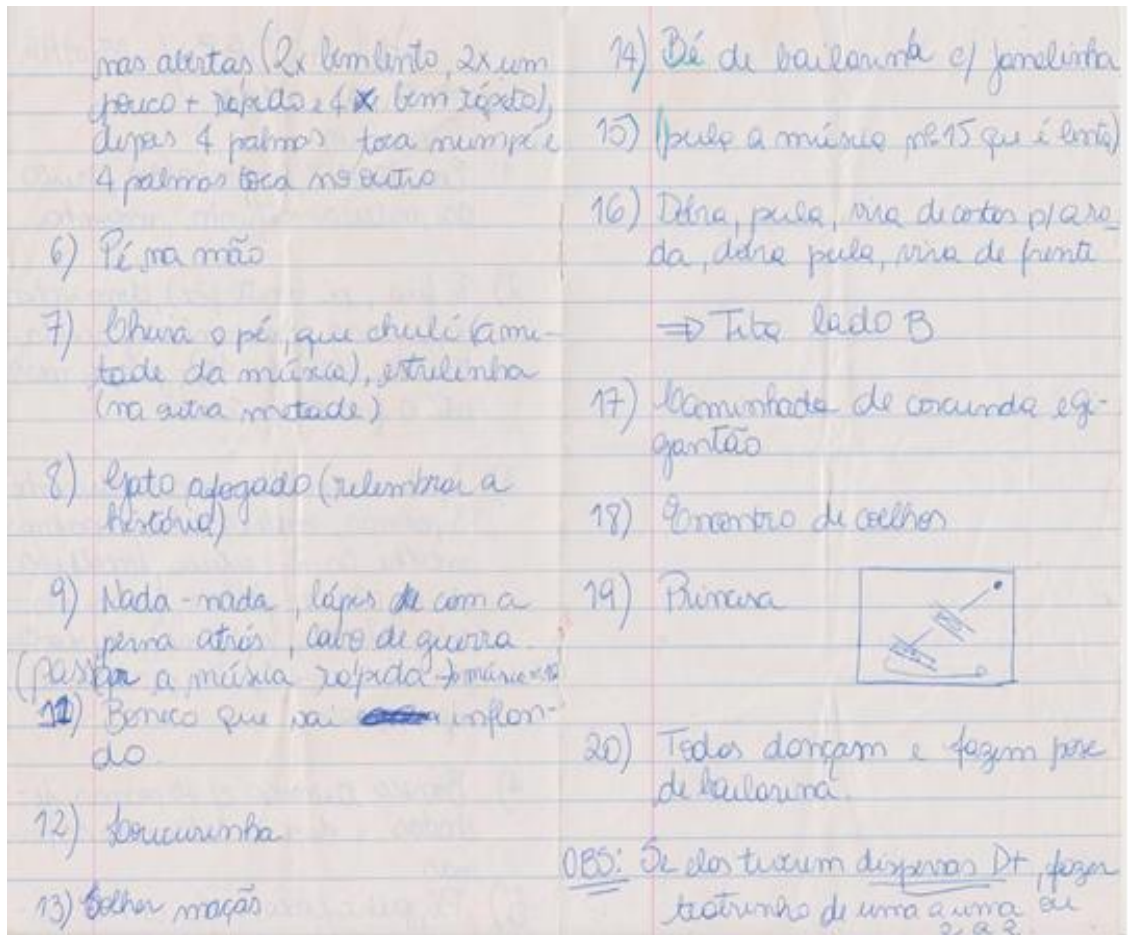 nas abertas (2x bem lento, 2x um
pouco + rápido e 4x bem rápido),
depois 4 palmas toca num pé e
4 palmas toca no outro
6) Pé na mão
7) Cheira o pé, que chulé (a me-
tade da música), estrelinha
(na outra metade)
8) Gato afogado (relembrar a
história)
9) Nada-nada, lápis com a
perna atrás, cabo de guerra.
(passar a música rápida → música
11) Boneco que vai inflan-
do
12) Loucurinha
13) Colher maçãs
14) Pé de bailarina c/ janelinha
15) (pula a música nº 15 que é lenta)
16) Dobra, pula, vira de costas p/ a ro-
da, dobra pula, vira de frente
⇒ Fita lado B
17) Caminhada de corcunda e gi-
gantão
18) Encontro de coelhos
19) Princesa
20) Todas dançam e fazem pose
de bailarina.
OBS: Se elas tiverem dispersas D+, fazer
teatrinho de uma a uma ou
2 a 2.